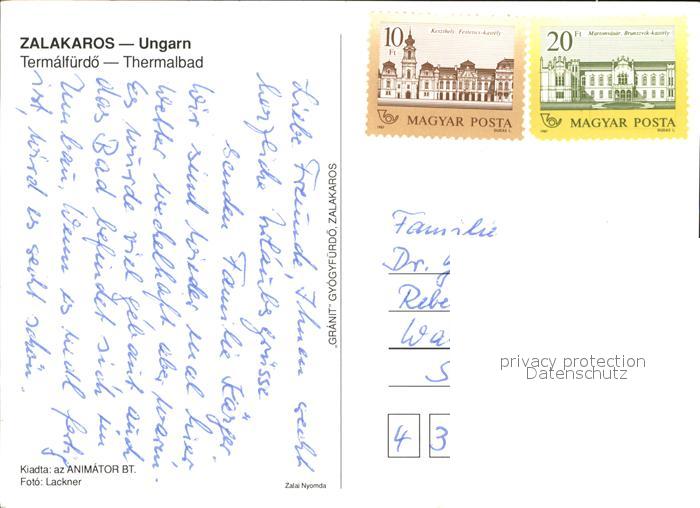 ZALAKAROS — Ungarn
Termálfürdő — Thermalbad
Liebe Freunde, Ihnen recht
herzliche Urlaubsgrüsse
senden Familie Karger.
Wir sind wieder mal hier
Wetter wechelhaft aber warm.
Es wurde viel gebaut auch
das Bad befindet sich im
Umbau. Wenn es mal fertig
ist, wird es recht schön.
Kiadta: az ANIMÁTOR BT.
Fotó: Lackner
Zalai Nyomda
„GRÁNIT" GYÓGYFÜRDŐ, ZALAKAROS
10 Ft
Keszthely: Festetics-kastély
MAGYAR POSTA
1987
DUDÁS L.
20 Ft
Martonvásár: Brunszvik-kastély
MAGYAR POSTA
1987
DUDÁS L.
Familie
Dr.
Rebe
Wa
S
4 3
privacy protection
Datenschutz